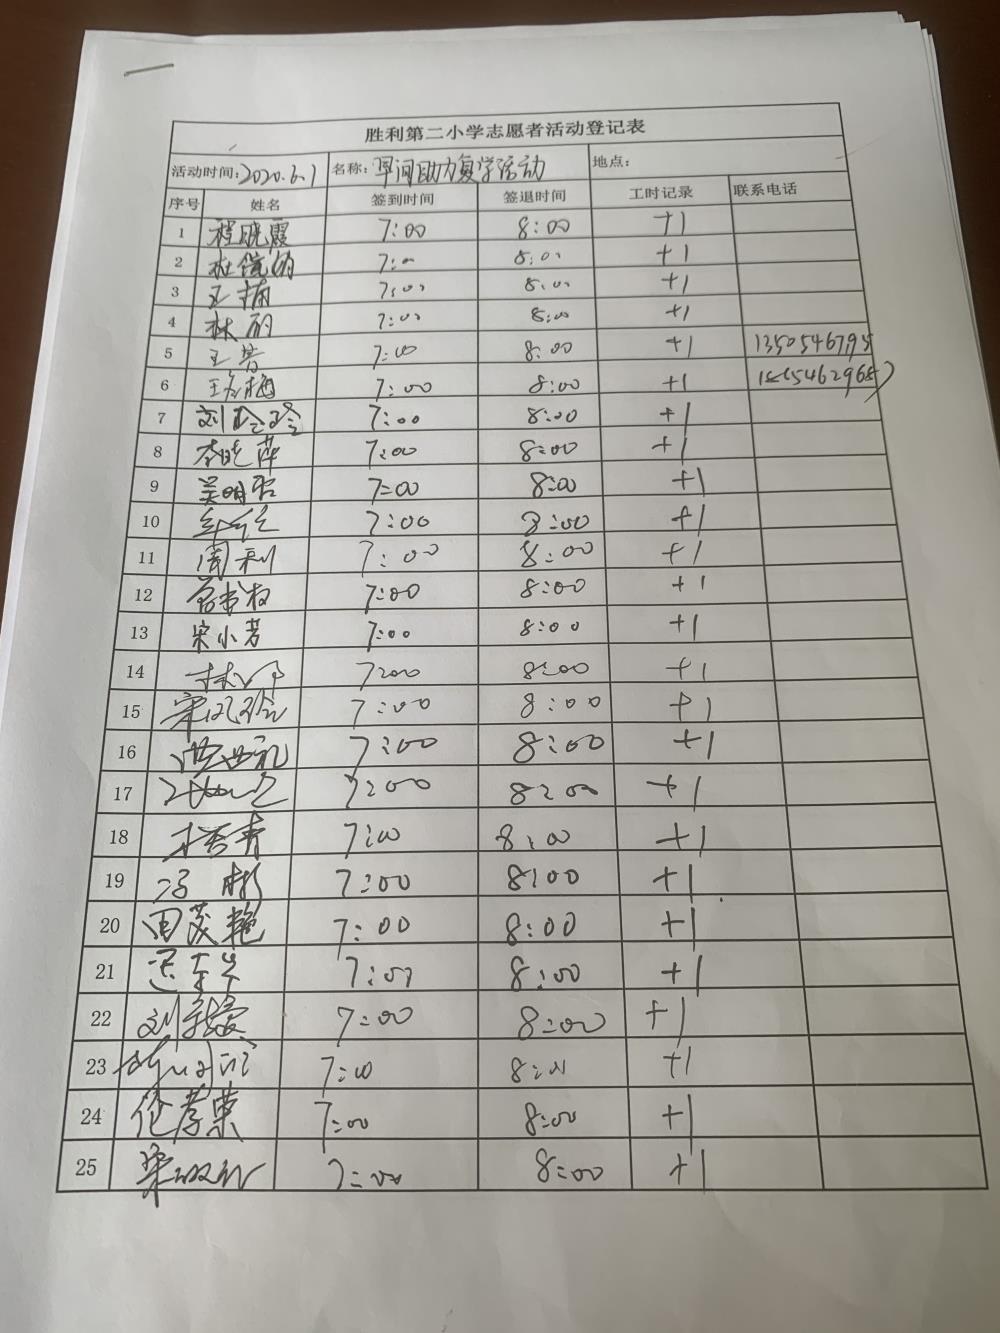 胜利第二小学志愿者活动登记表
活动时间:2020.6.1 名称:早间助力复学活动 地点:
序号 姓名 签到时间 签退时间 工时记录 联系电话
1 程晓霞 7:00 8:00 +1
2 7:00 8:00 +1
3 王楠 7:00 8:00 +1
4 林丽 7:00 8:00 +1
5 王芳 7:00 8:00 +1
6 7:00 8:00 +1
7 刘玲玲 7:00 8:00 +1
8 李晓萍 7:00 8:00 +1
9 吴明君 7:00 8:00 +1
10 7:00 8:00 +1
11 周利 7:00 8:00 +1
12 7:00 8:00 +1
13 宋小芳 7:00 8:00 +1
14 7:00 8:00 +1
15 7:00 8:00 +1
16 7:00 8:00 +1
17 7:00 8:00 +1
18 7:00 8:00 +1
19 冯彬 7:00 8:00 +1
20 田茂艳 7:00 8:00 +1
21 7:00 8:00 +1
22 7:00 8:00 +1
23 7:00 8:00 +1
24 7:00 8:00 +1
25 7:00 8:00 +1